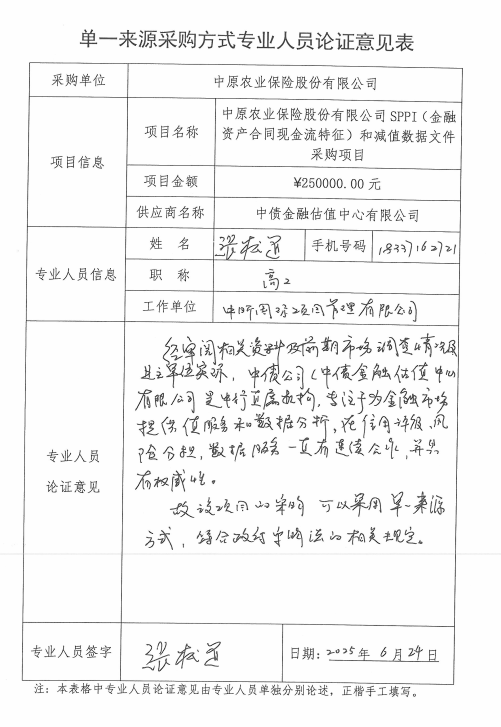 单一来源采购方式专业人员论证意见表
采购单位 中原农业保险股份有限公司
项目信息
项目名称
中原农业保险股份有限公司SPPI（金融
资产合同现金流特征）和减值数据文件
采购项目
项目金额 ¥250000.00 元
供应商名称 中债金融估值中心有限公司
专业人员信息
姓 名 张松 手机号码 18337162721
职 称 高工
工作单位 国际项目管理有限公司
专业人员
论证意见
经审阅相关资料及前期市场调查情况及
业主单位实际，中债公司（中债金融估值中心
有限公司）是 直属机构，专注于为金融市场
提供估值服务和数据分析，在信用评级、风
险分担，数据服务一直有 ，并具
有权威性。
故该项目的采购 可以采用单一来源
方式，符合政府采购法的相关规定。
专业人员签字 张松
日期：2025年 6月 24日
注：本表格中专业人员论证意见由专业人员单独分别论述，正楷手工填写。